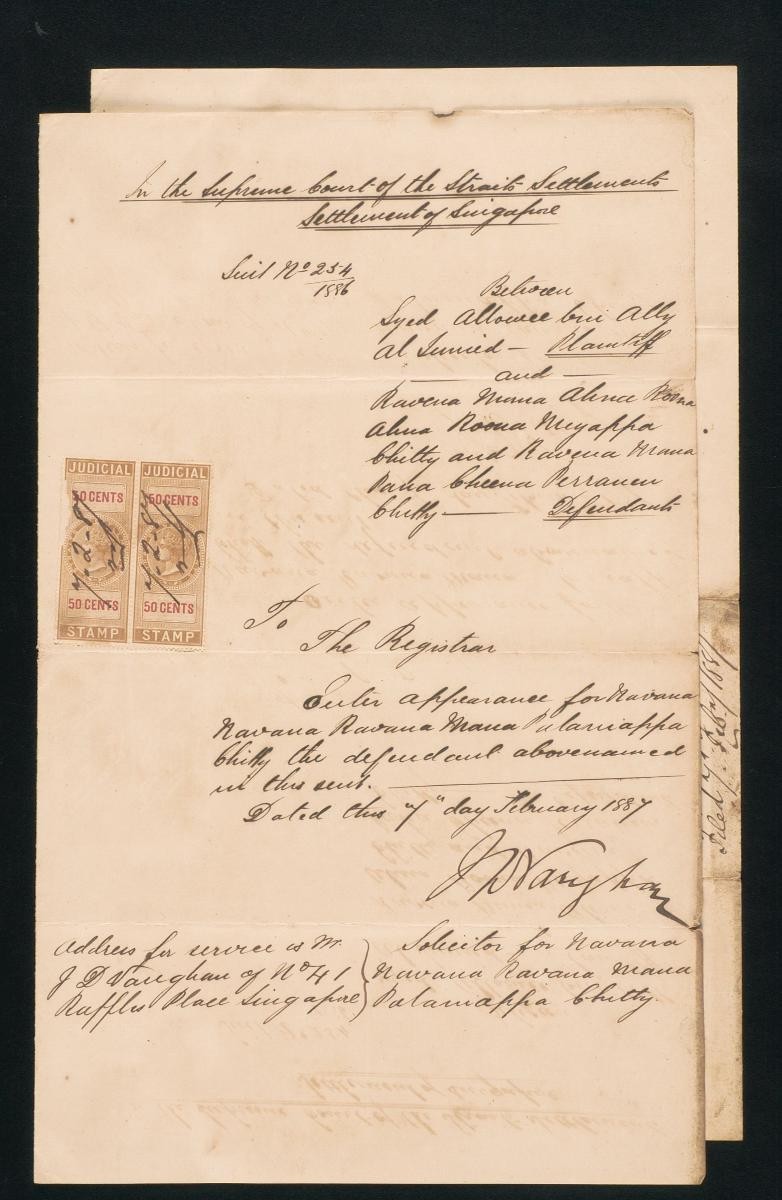 In the Supreme Court of the Straits Settlements
Settlement of Singapore
Suit No 254
1886
Between
Syed Allowee bin Ally
Al Junied — Plaintiff
— and —
Ravena Mana Ahna Roona
Ahna Roona Meyappa
Chitty and Ravena Mana
Pana Cheena Perranen
Chitty — Defendants
JUDICIAL
50 CENTS
50 CENTS
STAMP
JUDICIAL
50 CENTS
50 CENTS
STAMP
To
The Registrar
Enter appearance for Navana
Navana Ravana Mana Palaniappa
Chitty the defendant abovenamed
in this suit.
Dated this "7" day February 1887
J D Vaughan
Address for service is Mr
J D Vaughan of No 41
Raffles Place Singapore
Solicitor for Navana
Navana Ravana Mana
Palaniappa Chitty.
Filed 7 Feby 1887